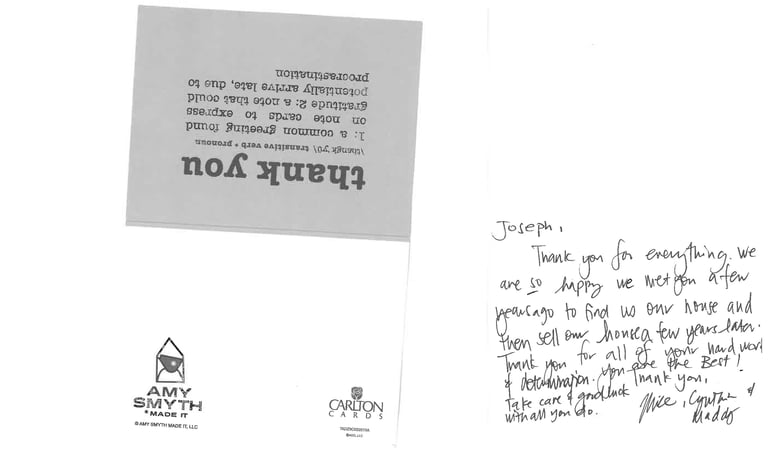 thank you
\thangk yo͞o\ transitive verb * pronoun
1: a common greeting found
on note cards to express
gratitude 2: a note that could
potentially arrive late, due to
procrastination
AMY
SMYTH
* MADE IT
© AMY SMYTH MADE IT, LLC
CARLTON
CARDS
Joseph,
Thank you for everything. We
are so happy we met you a few
years ago to find us our house and
then sell our house a few years later.
Thank you for all of your hard work
& determination. You are the Best!
Thank you,
Take care & good luck
with all you do.
Mice, Cynthia &
Maddy